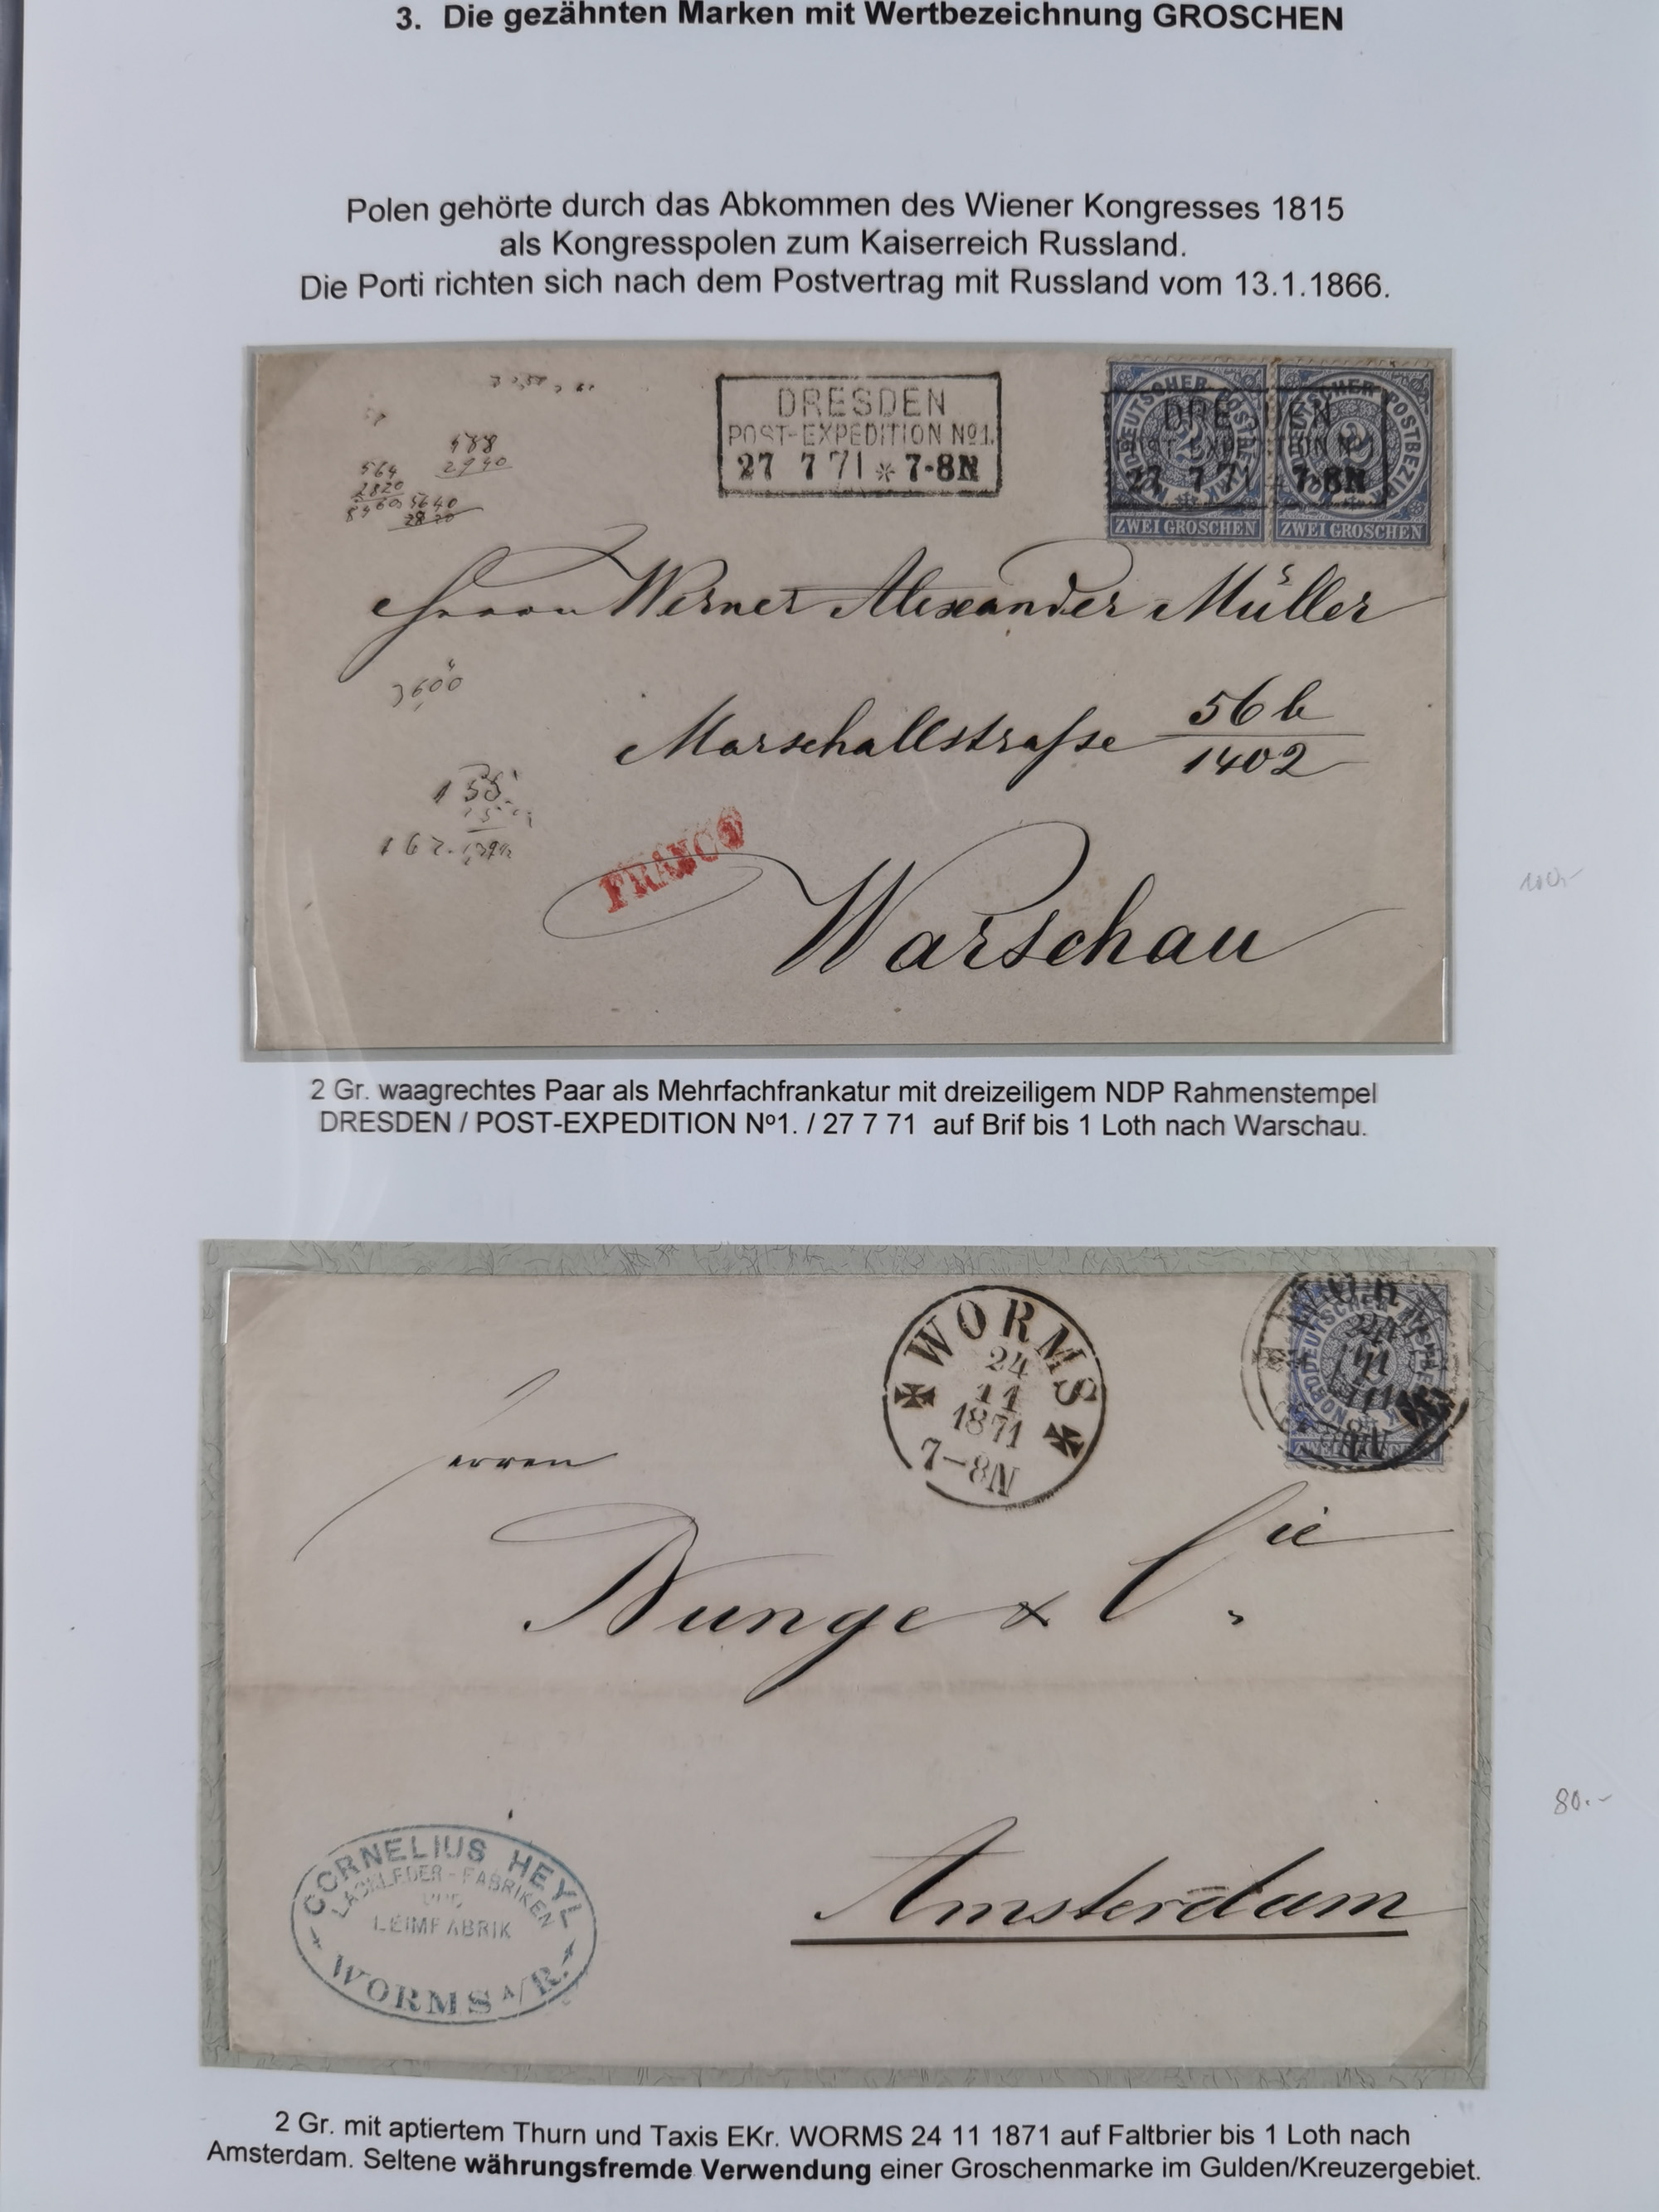 3. Die gezähnten Marken mit Wertbezeichnung GROSCHEN
Polen gehörte durch das Abkommen des Wiener Kongresses 1815
als Kongresspolen zum Kaiserreich Russland.
Die Porti richten sich nach dem Postvertrag mit Russland vom 13.1.1866.
DRESDEN
POST-EXPEDITION No1.
27 7 71 * 7-8N
NORDDEUTSCHER POSTBEZIRK
2
ZWEI GROSCHEN
NORDDEUTSCHER POSTBEZIRK
2
ZWEI GROSCHEN
DRESDEN
POST-EXPEDITION No1.
27 7 71 * 7-8N
588
2940
564
2820
5640
Herrn Werner Alexander Müller
3600
Marschallstraße 56b
1402
FRANCO
Warschau
100.-
2 Gr. waagrechtes Paar als Mehrfachfrankatur mit dreizeiligem NDP Rahmenstempel
DRESDEN / POST-EXPEDITION Nº1. / 27 7 71 auf Brif bis 1 Loth nach Warschau.
WORMS
24
11
1871
7-8N
NORDDEUTSCHER POSTBEZIRK
ZWEI GROSCHEN
Herren
Runge & Cie
80.-
CORNELIUS HEYL
LACKLEDER-FABRIKEN
UND
LEIMFABRIK
WORMS A/R.
Amsterdam
2 Gr. mit aptiertem Thurn und Taxis EKr. WORMS 24 11 1871 auf Faltbrier bis 1 Loth nach
Amsterdam. Seltene währungsfremde Verwendung einer Groschenmarke im Gulden/Kreuzergebiet.